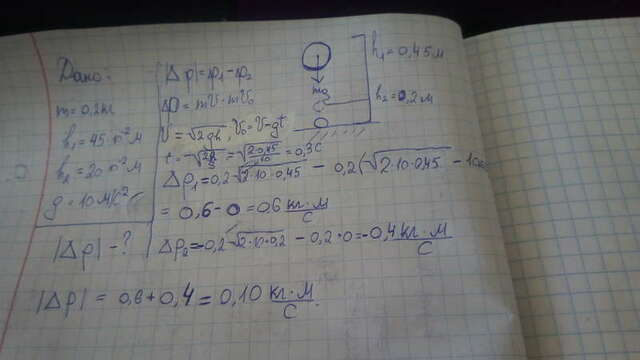 Дано:
m=0,2кг
h₁=45·10⁻²м
h₂=20·10⁻²м
g=10м/с²
|Δp|-?
|Δp|=p₁-p₂
Δp=mV-mV₀
V=√2gh V₀=V-gt
t=√2h/g=√2·0,45/10=0,3с
Δp₁=0,2·√2·10·0,45 - 0,2(√2·10·0,45 -
= 0,6-0=0,6 кг·м/с
Δp₂=0,2√2·10·0,2 - 0,2·0=-0,4 кг·м/с
|Δp| = 0,6+0,4=0,10 кг·м/с
h₁=0,45м
mg
h₂=0,2м